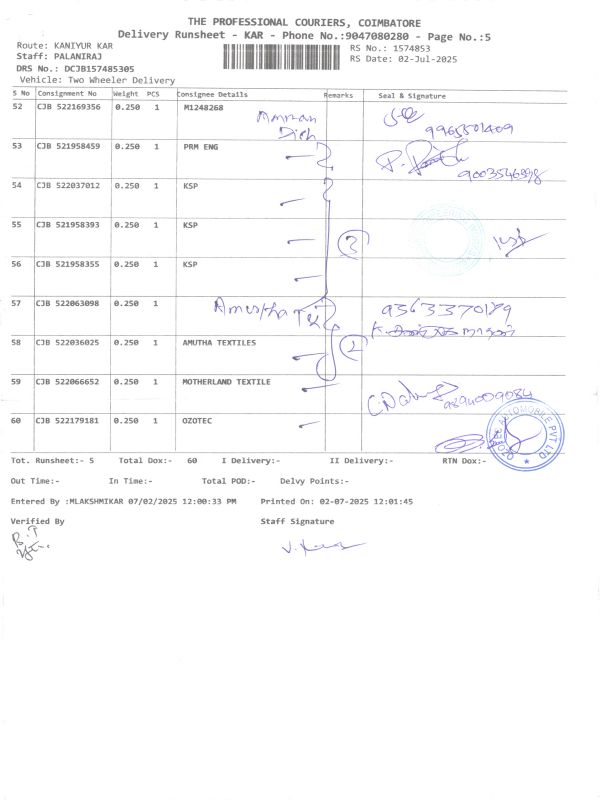 THE PROFESSIONAL COURIERS, COIMBATORE
Delivery Runsheet - KAR - Phone No.:9047080280 - Page No.:5
Route: KANIYUR KAR RS No.: 1574853
Staff: PALANIRAJ RS Date: 02-Jul-2025
DRS No.: DCJB157485305
Vehicle: Two Wheeler Delivery
S No Consignment No Weight PCS Consignee Details Remarks Seal & Signature
52 CJB 522169356 0.250 1 M1248268
53 CJB 521958459 0.250 1 PRM ENG
9003546398
54 CJB 522037012 0.250 1 KSP
55 CJB 521958393 0.250 1 KSP
3
56 CJB 521958355 0.250 1 KSP
57 CJB 522063098 0.250 1 Amurtha Tex
58 CJB 522036025 0.250 1 AMUTHA TEXTILES
2
59 CJB 522066652 0.250 1 MOTHERLAND TEXTILE
9894009084
60 CJB 522179181 0.250 1 OZOTEC
OZOTEC AUTOMOBILE PVT LTD
Tot. Runsheet:- 5 Total Dox:- 60 I Delivery:- II Delivery:- RTN Dox:-
Out Time:- In Time:- Total POD:- Delvy Points:-
Entered By :MLAKSHMIKAR 07/02/2025 12:00:33 PM Printed On: 02-07-2025 12:01:45
Verified By Staff Signature